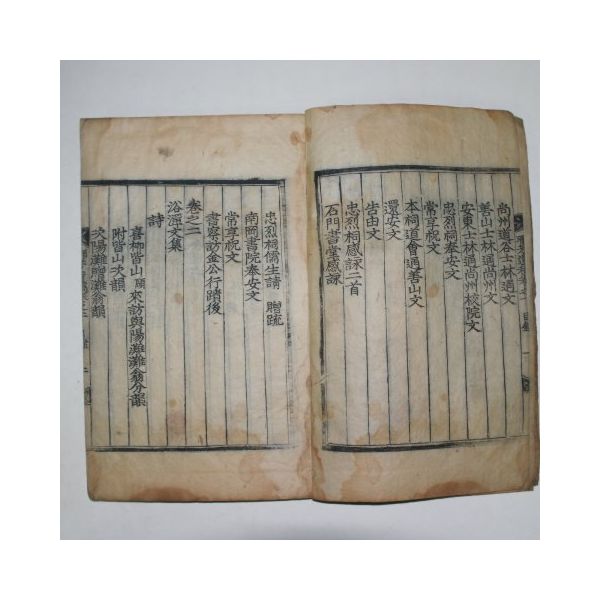 尙州道谷士林通文
善山士林通尙州文
安東士林通尙州校院文
忠烈祠奉安文
常享祝文
本祠道會通善山文
還安文
告由文
忠烈祠感詠二首
石門書堂感詠
忠烈祠儒生請贈疏
南岡書院奉安文
常享祝文
書寧訪金公行蹟後
卷之二
浴潭文集
詩
喜柳皆山頤來訪與陽灘灘翁分韻
附皆山次韻
次陽灘贈灘翁韻